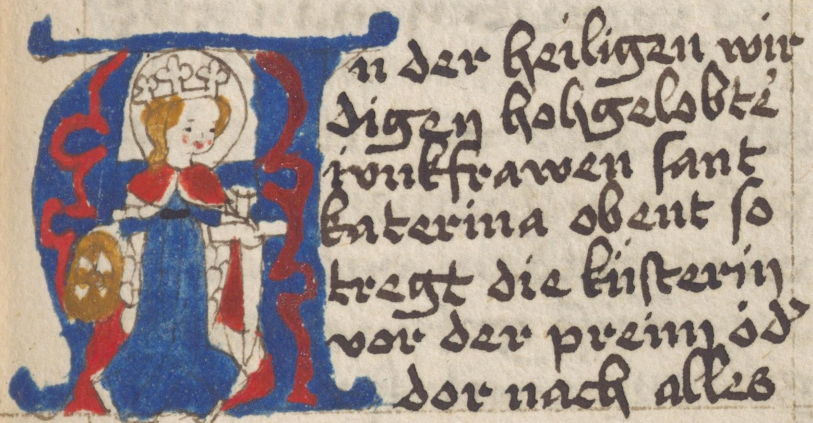 An der heiligen wir
digen hohgelobte
iunkfrawen sant
katerina obent so
tregt die küsterin
vor der preim od'
dor nach alles